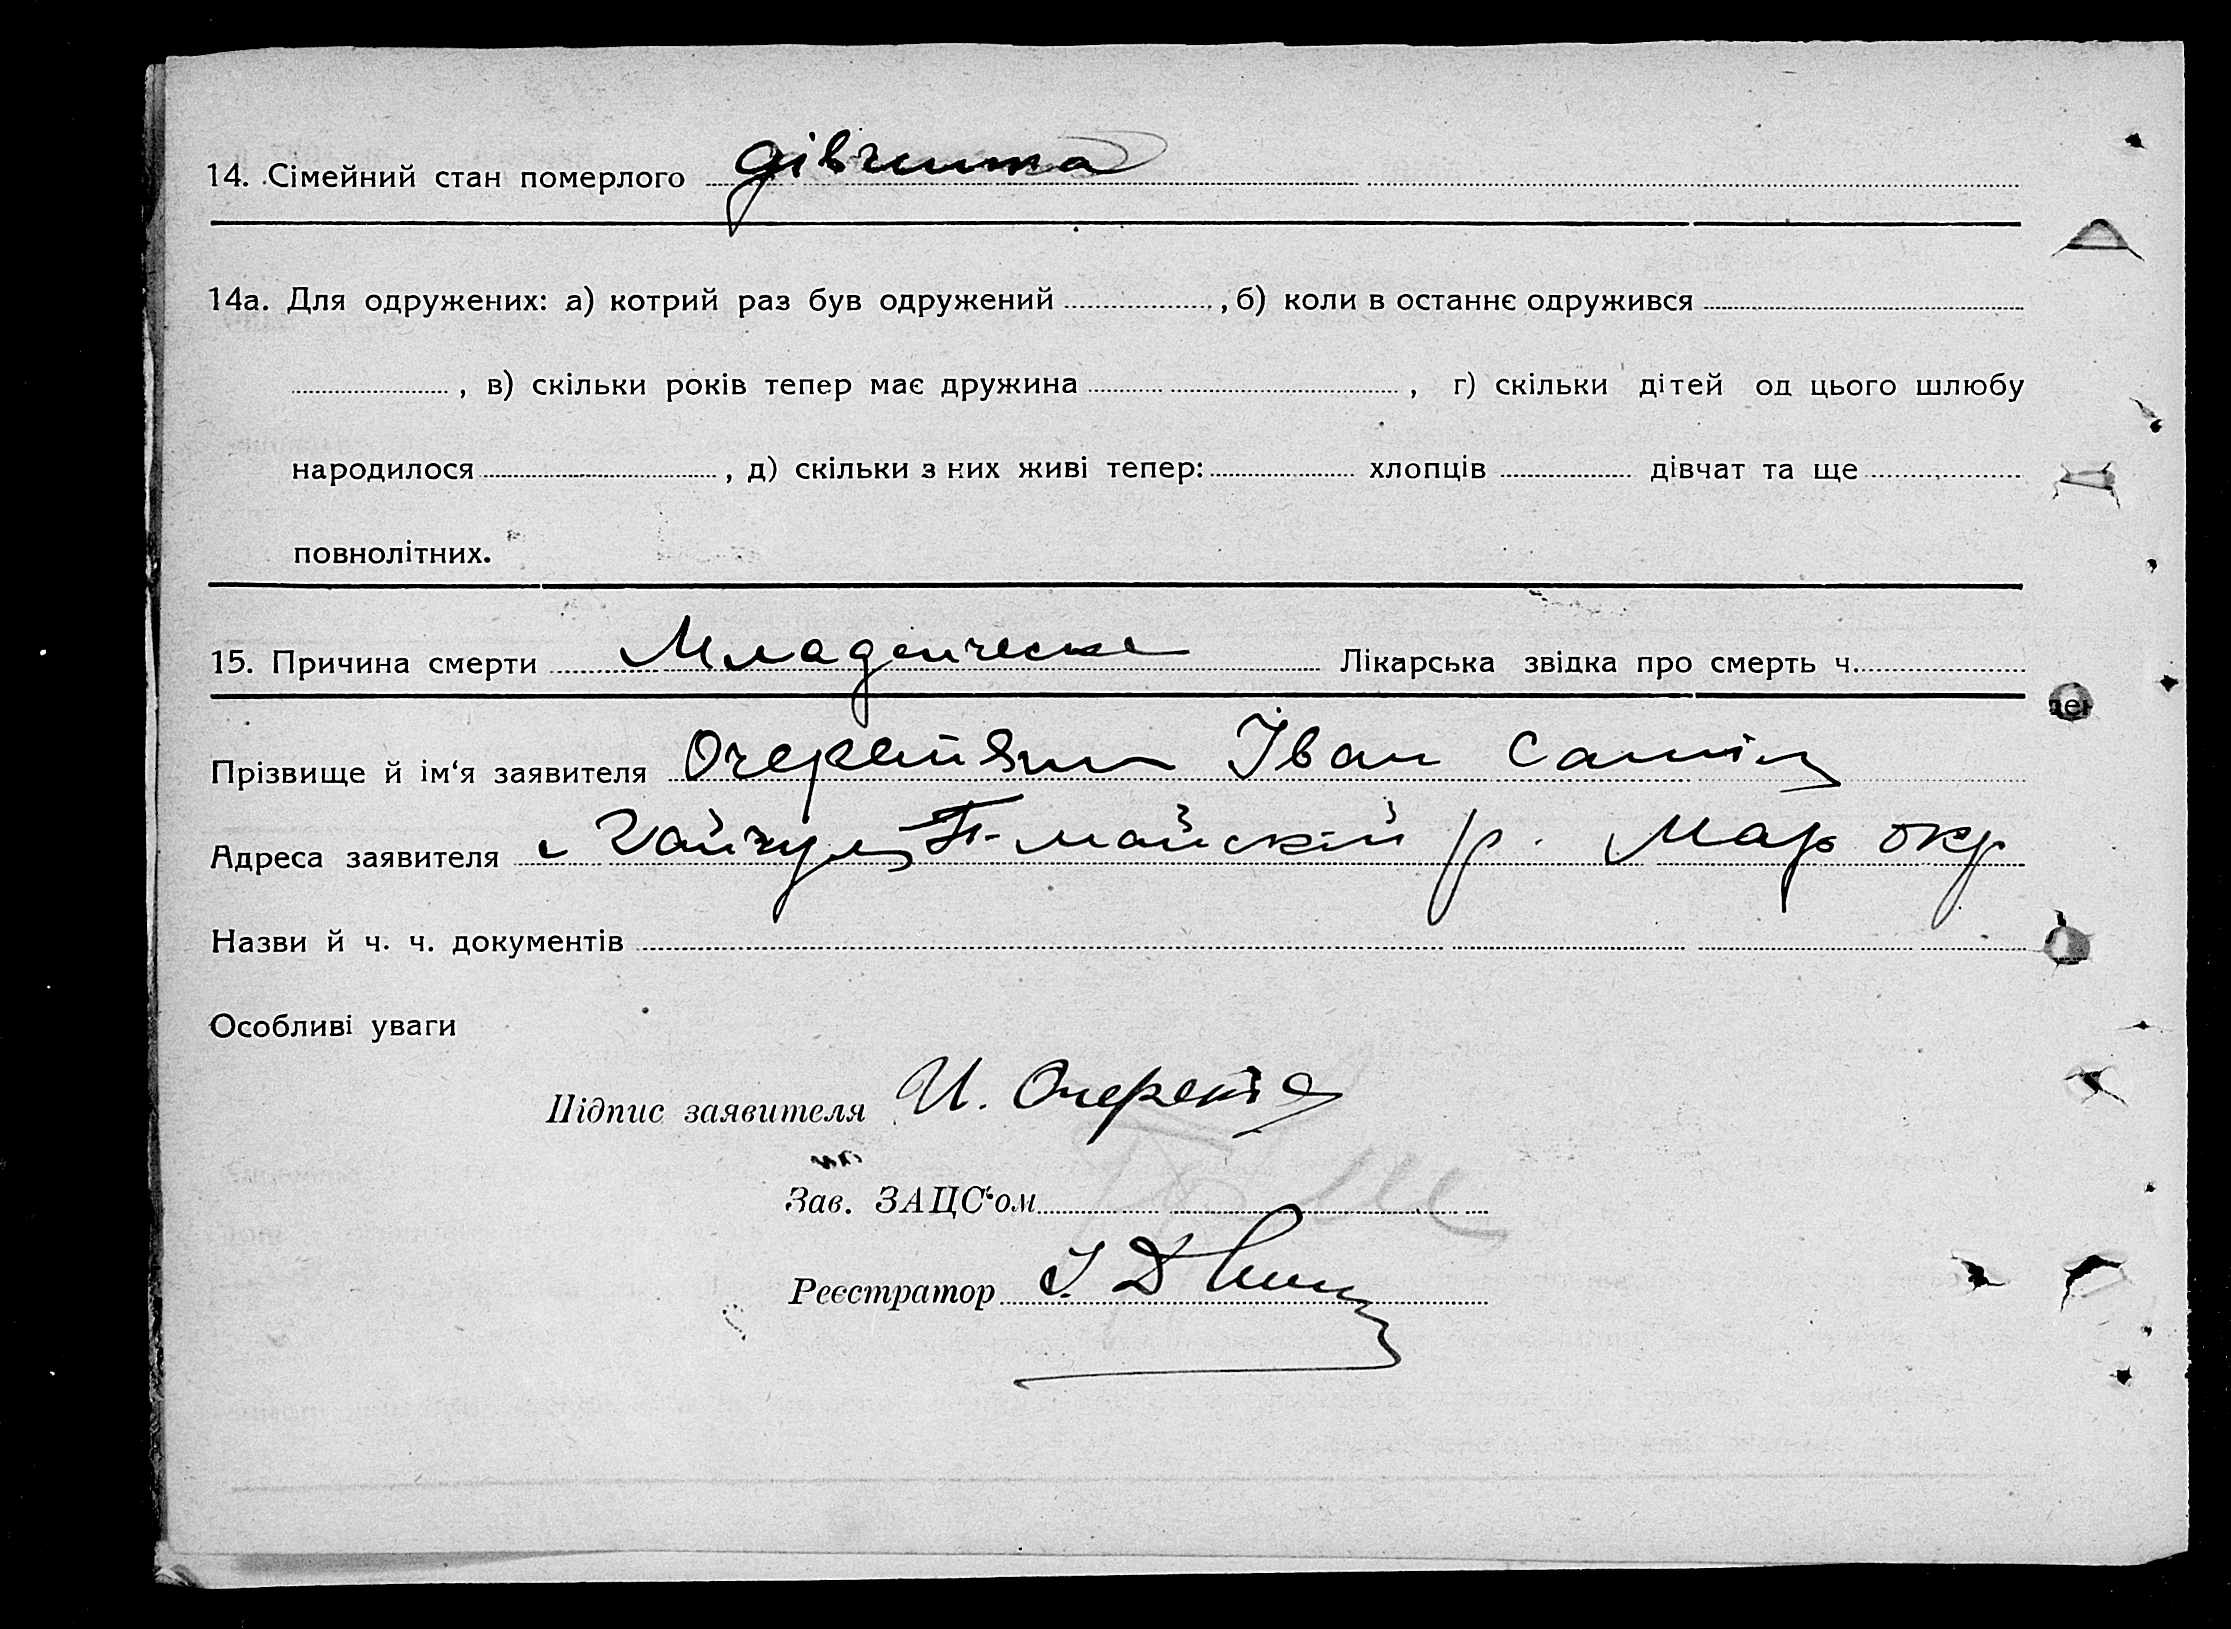 14. Сімейний стан померлого дівчина
14а. Для одружених: а) котрий раз був одружений , б) коли в останнє одружився
, в) скільки років тепер має дружина , г) скільки дітей од цього шлюбу
народилося , д) скільки з них живі тепер: хлопців дівчат та ще
повнолітних.
15. Причина смерти Младенческ Лікарська звідка про смерть ч.
Прізвище й ім'я заявителя Іван
Адреса заявителя с Гайчул П-майский р. Мар окр
Назви й ч. ч. документів
Особливі уваги
Підпис заявителя И.
Зав. ЗАЦС'ом
Реєстратор